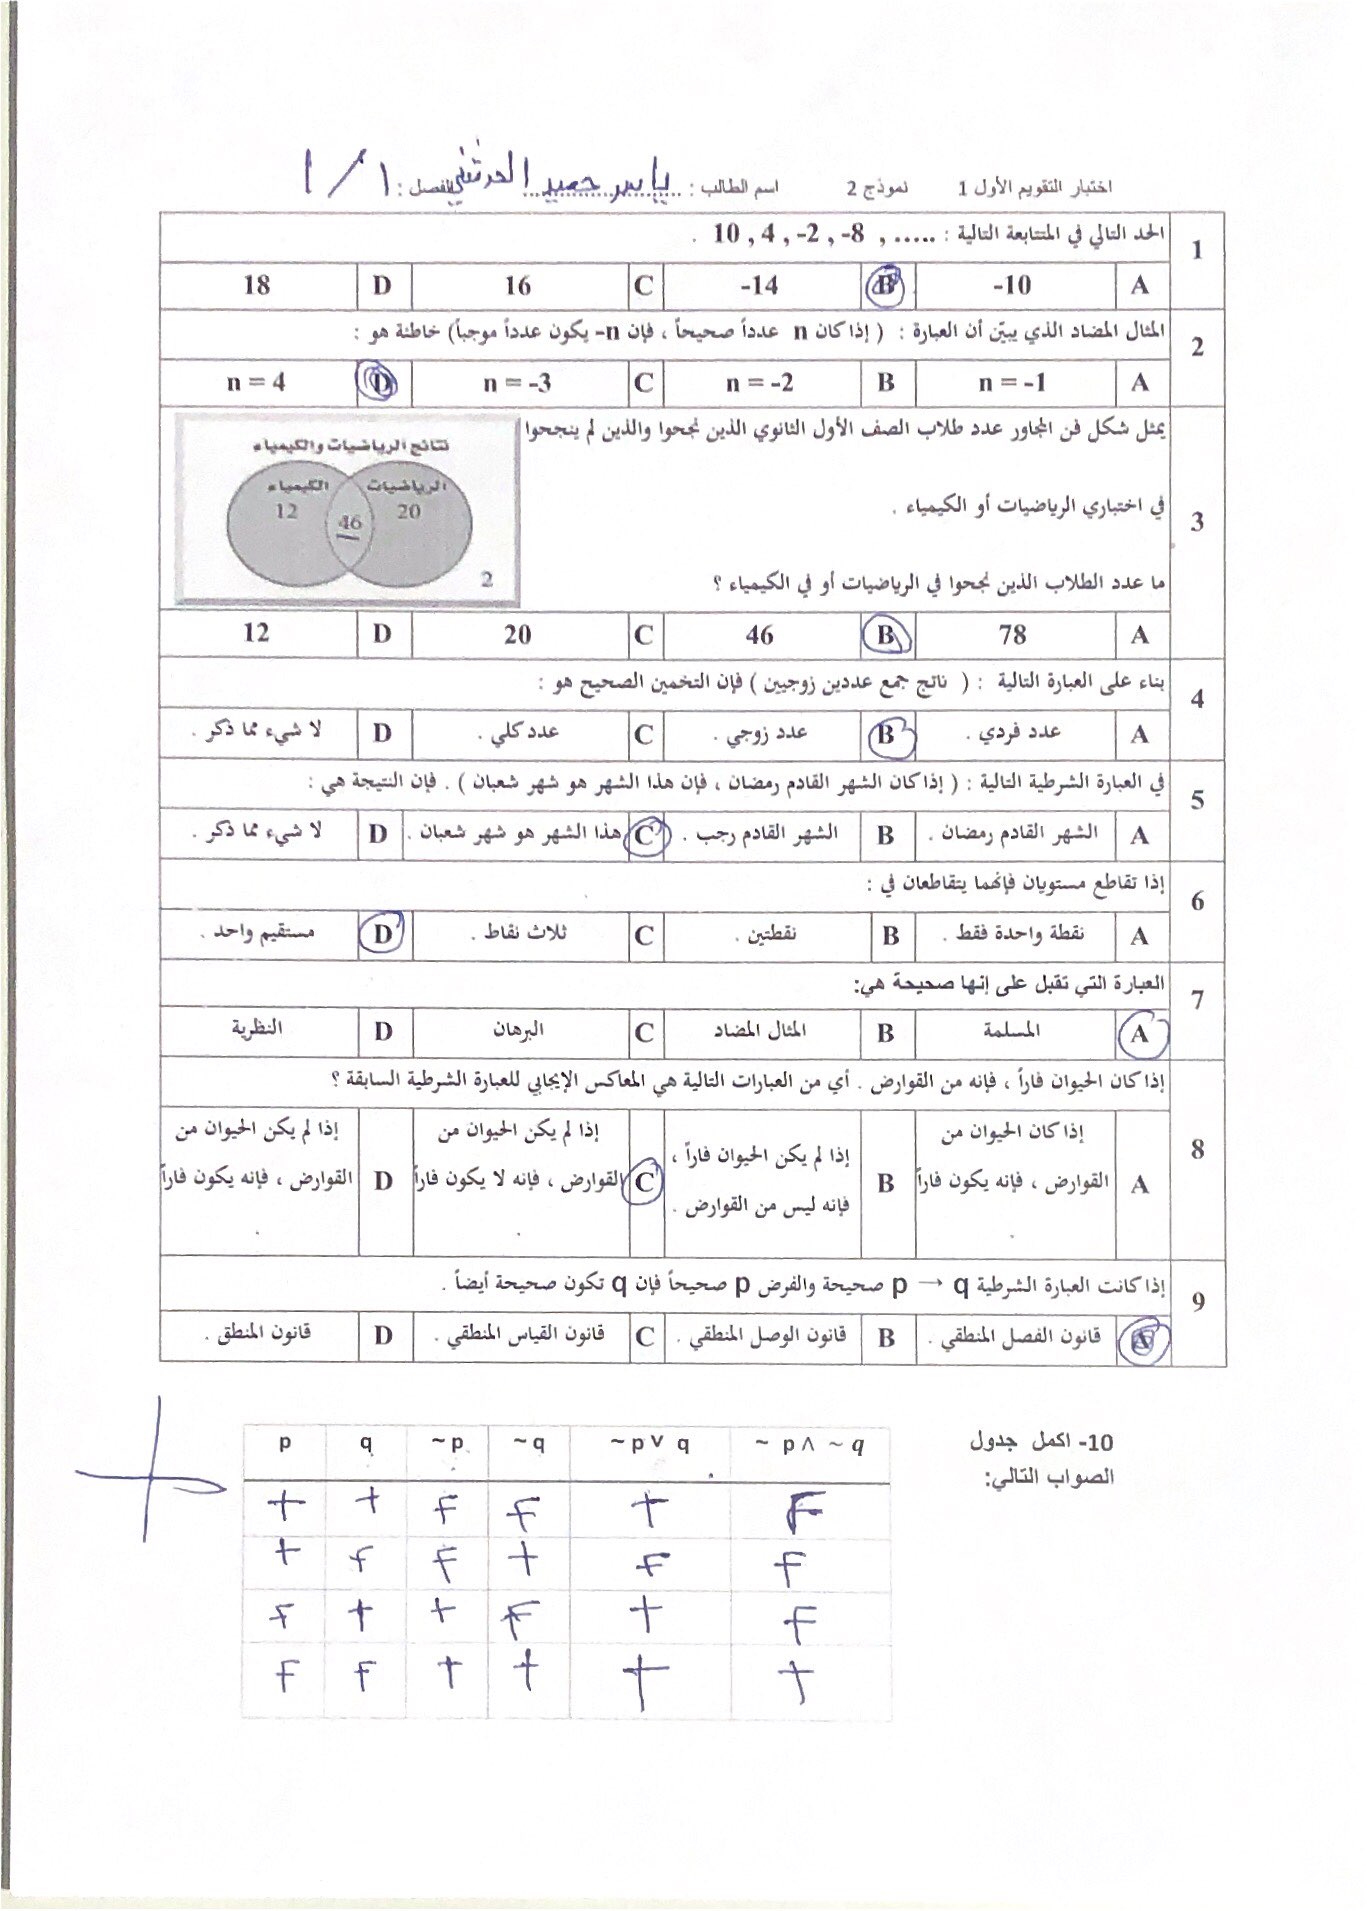 اختبار التقويم الأول 1 نموذج 2 اسم الطالب : ياسر حميد الفصل : ١ / ١
1 الحد التالي في المتتابعة التالية : ..... , 10 , 4 , -2 , -8 .
A -10 B -14 C 16 D 18
2 المثال المضاد الذي يبيّن أن العبارة : ( إذا كان n عدداً صحيحاً ، فإن n- يكون عدداً موجباً) خاطئة هو :
A n = -1 B n = -2 C n = -3 D n = 4
3 يمثل شكل فن المجاور عدد طلاب الصف الأول الثانوي الذين نجحوا والذين لم ينجحوا
في اختباري الرياضيات أو الكيمياء .
ما عدد الطلاب الذين نجحوا في الرياضيات أو في الكيمياء ؟
نتائج الرياضيات والكيمياء
الرياضيات الكيمياء
20 46 12
2
A 78 B 46 C 20 D 12
4 بناء على العبارة التالية : ( ناتج جمع عددين زوجيين ) فإن التخمين الصحيح هو :
A عدد فردي . B عدد زوجي . C عدد كلي . D لا شيء مما ذكر .
5 في العبارة الشرطية التالية : ( إذا كان الشهر القادم رمضان ، فإن هذا الشهر هو شهر شعبان ) . فإن النتيجة هي :
A الشهر القادم رمضان . B الشهر القادم رجب . C هذا الشهر هو شهر شعبان . D لا شيء مما ذكر .
6 إذا تقاطع مستويان فإنهما يتقاطعان في :
A نقطة واحدة فقط . B نقطتين . C ثلاث نقاط . D مستقيم واحد .
7 العبارة التي تقبل على إنها صحيحة هي:
A المسلمة B المثال المضاد C البرهان D النظرية
8 إذا كان الحيوان فاراً ، فإنه من القوارض . أي من العبارات التالية هي المعاكس الإيجابي للعبارة الشرطية السابقة ؟
A إذا كان الحيوان من القوارض ، فإنه يكون فاراً .
B إذا لم يكن الحيوان فاراً ، فإنه ليس من القوارض .
C إذا لم يكن الحيوان من القوارض ، فإنه لا يكون فاراً .
D إذا لم يكن الحيوان من القوارض ، فإنه يكون فاراً .
9 إذا كانت العبارة الشرطية p → q صحيحة والفرض p صحيحاً فإن q تكون صحيحة أيضاً .
A قانون الفصل المنطقي . B قانون الوصل المنطقي . C قانون القياس المنطقي . D قانون المنطق .
10- اكمل جدول
الصواب التالي:
p q ~p ~q ~p ∨ q ~ p ∧ ~ q
t t F F t F
t F F t F F
F t t F t F
F F t t t t